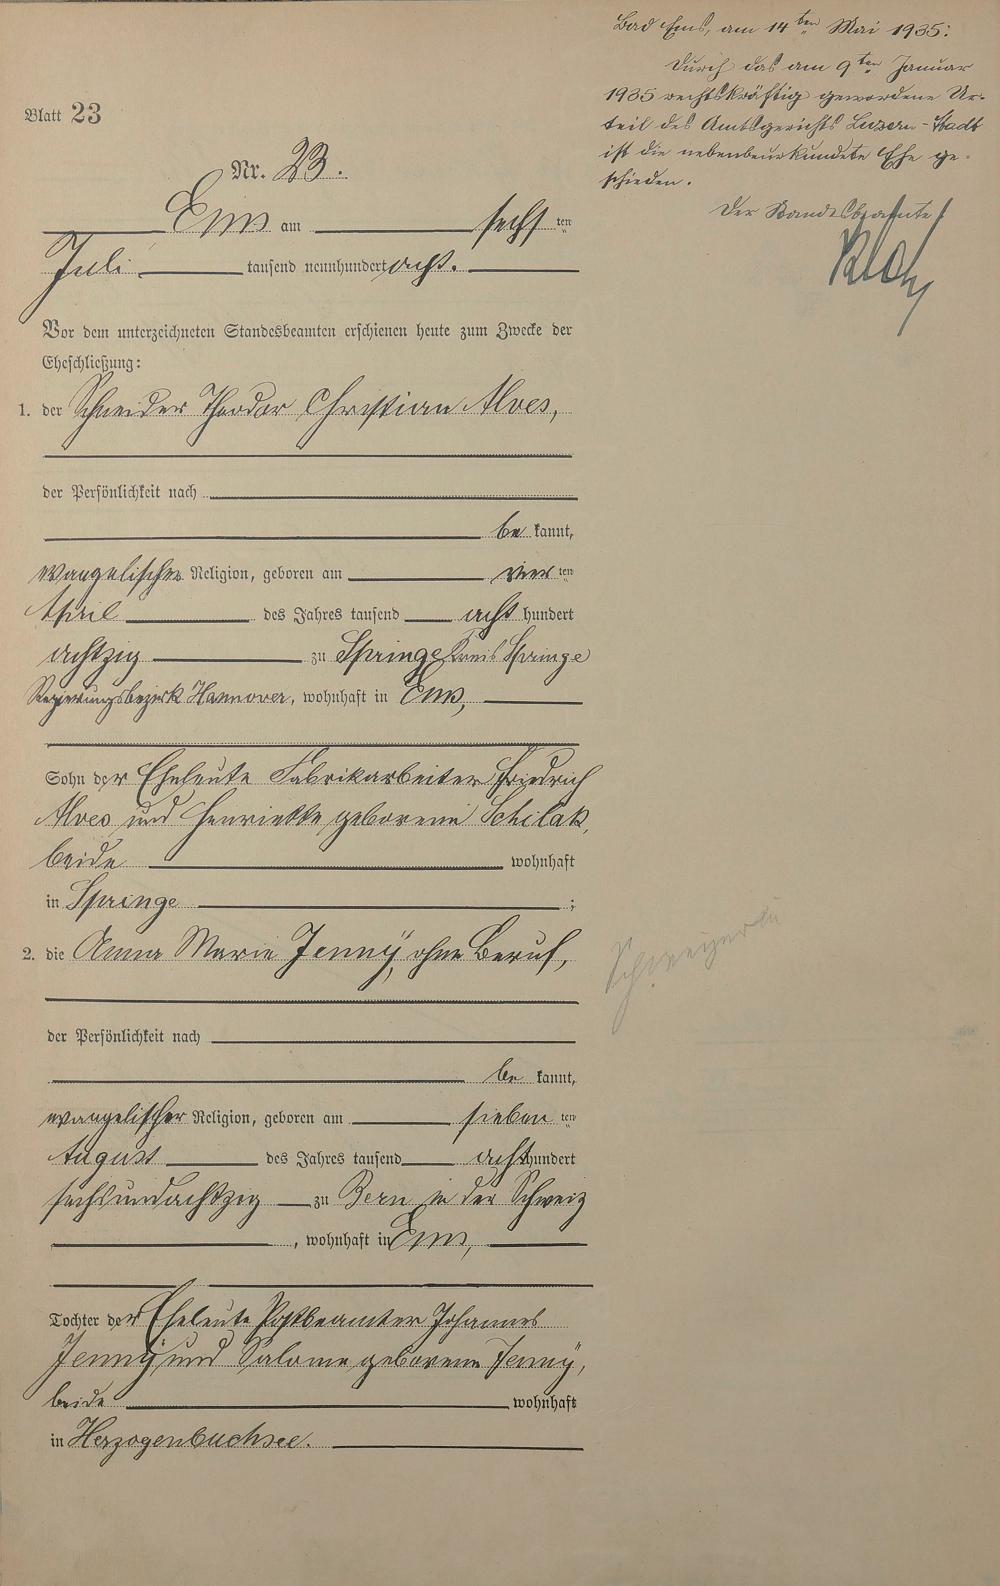 Bad Ems, am 14ten Mai 1935:
Durch das am 9ten Januar
1935 rechtskräftig gewordene Ur-
teil des Amtsgerichts Luzern-Stadt
ist die nebenbeurkundete Ehe ge-
schieden.
Der Standesbeamte
Blatt 23
Nr. 23.
Ems am sechsten
Juli tausend neunhundert acht.
Vor dem unterzeichneten Standesbeamten erschienen heute zum Zwecke der
Eheschließung:
1. der Schneider Theodor Christian Alves,
der Persönlichkeit nach
be kannt,
evangelischer Religion, geboren am vierten
April des Jahres tausend acht hundert
achtzig zu Springe Kreis Springe
Regierungsbezirk Hannover, wohnhaft in Ems,
Sohn der Eheleute Fabrikarbeiter Friedrich
Alves und Henriette geborene Schilak,
beide wohnhaft
in Springe ;
2. die Anna Marie Jenny, ohne Beruf,
Schweizerin
der Persönlichkeit nach
be kannt,
evangelischer Religion, geboren am siebenten
August des Jahres tausend acht hundert
sechsundachtzig zu Bern in der Schweiz
, wohnhaft in Ems,
Tochter der Eheleute Postbeamter Johannes
Jenny und Salome geborene Jenny,
beide wohnhaft
in Herzogenbuchsee.